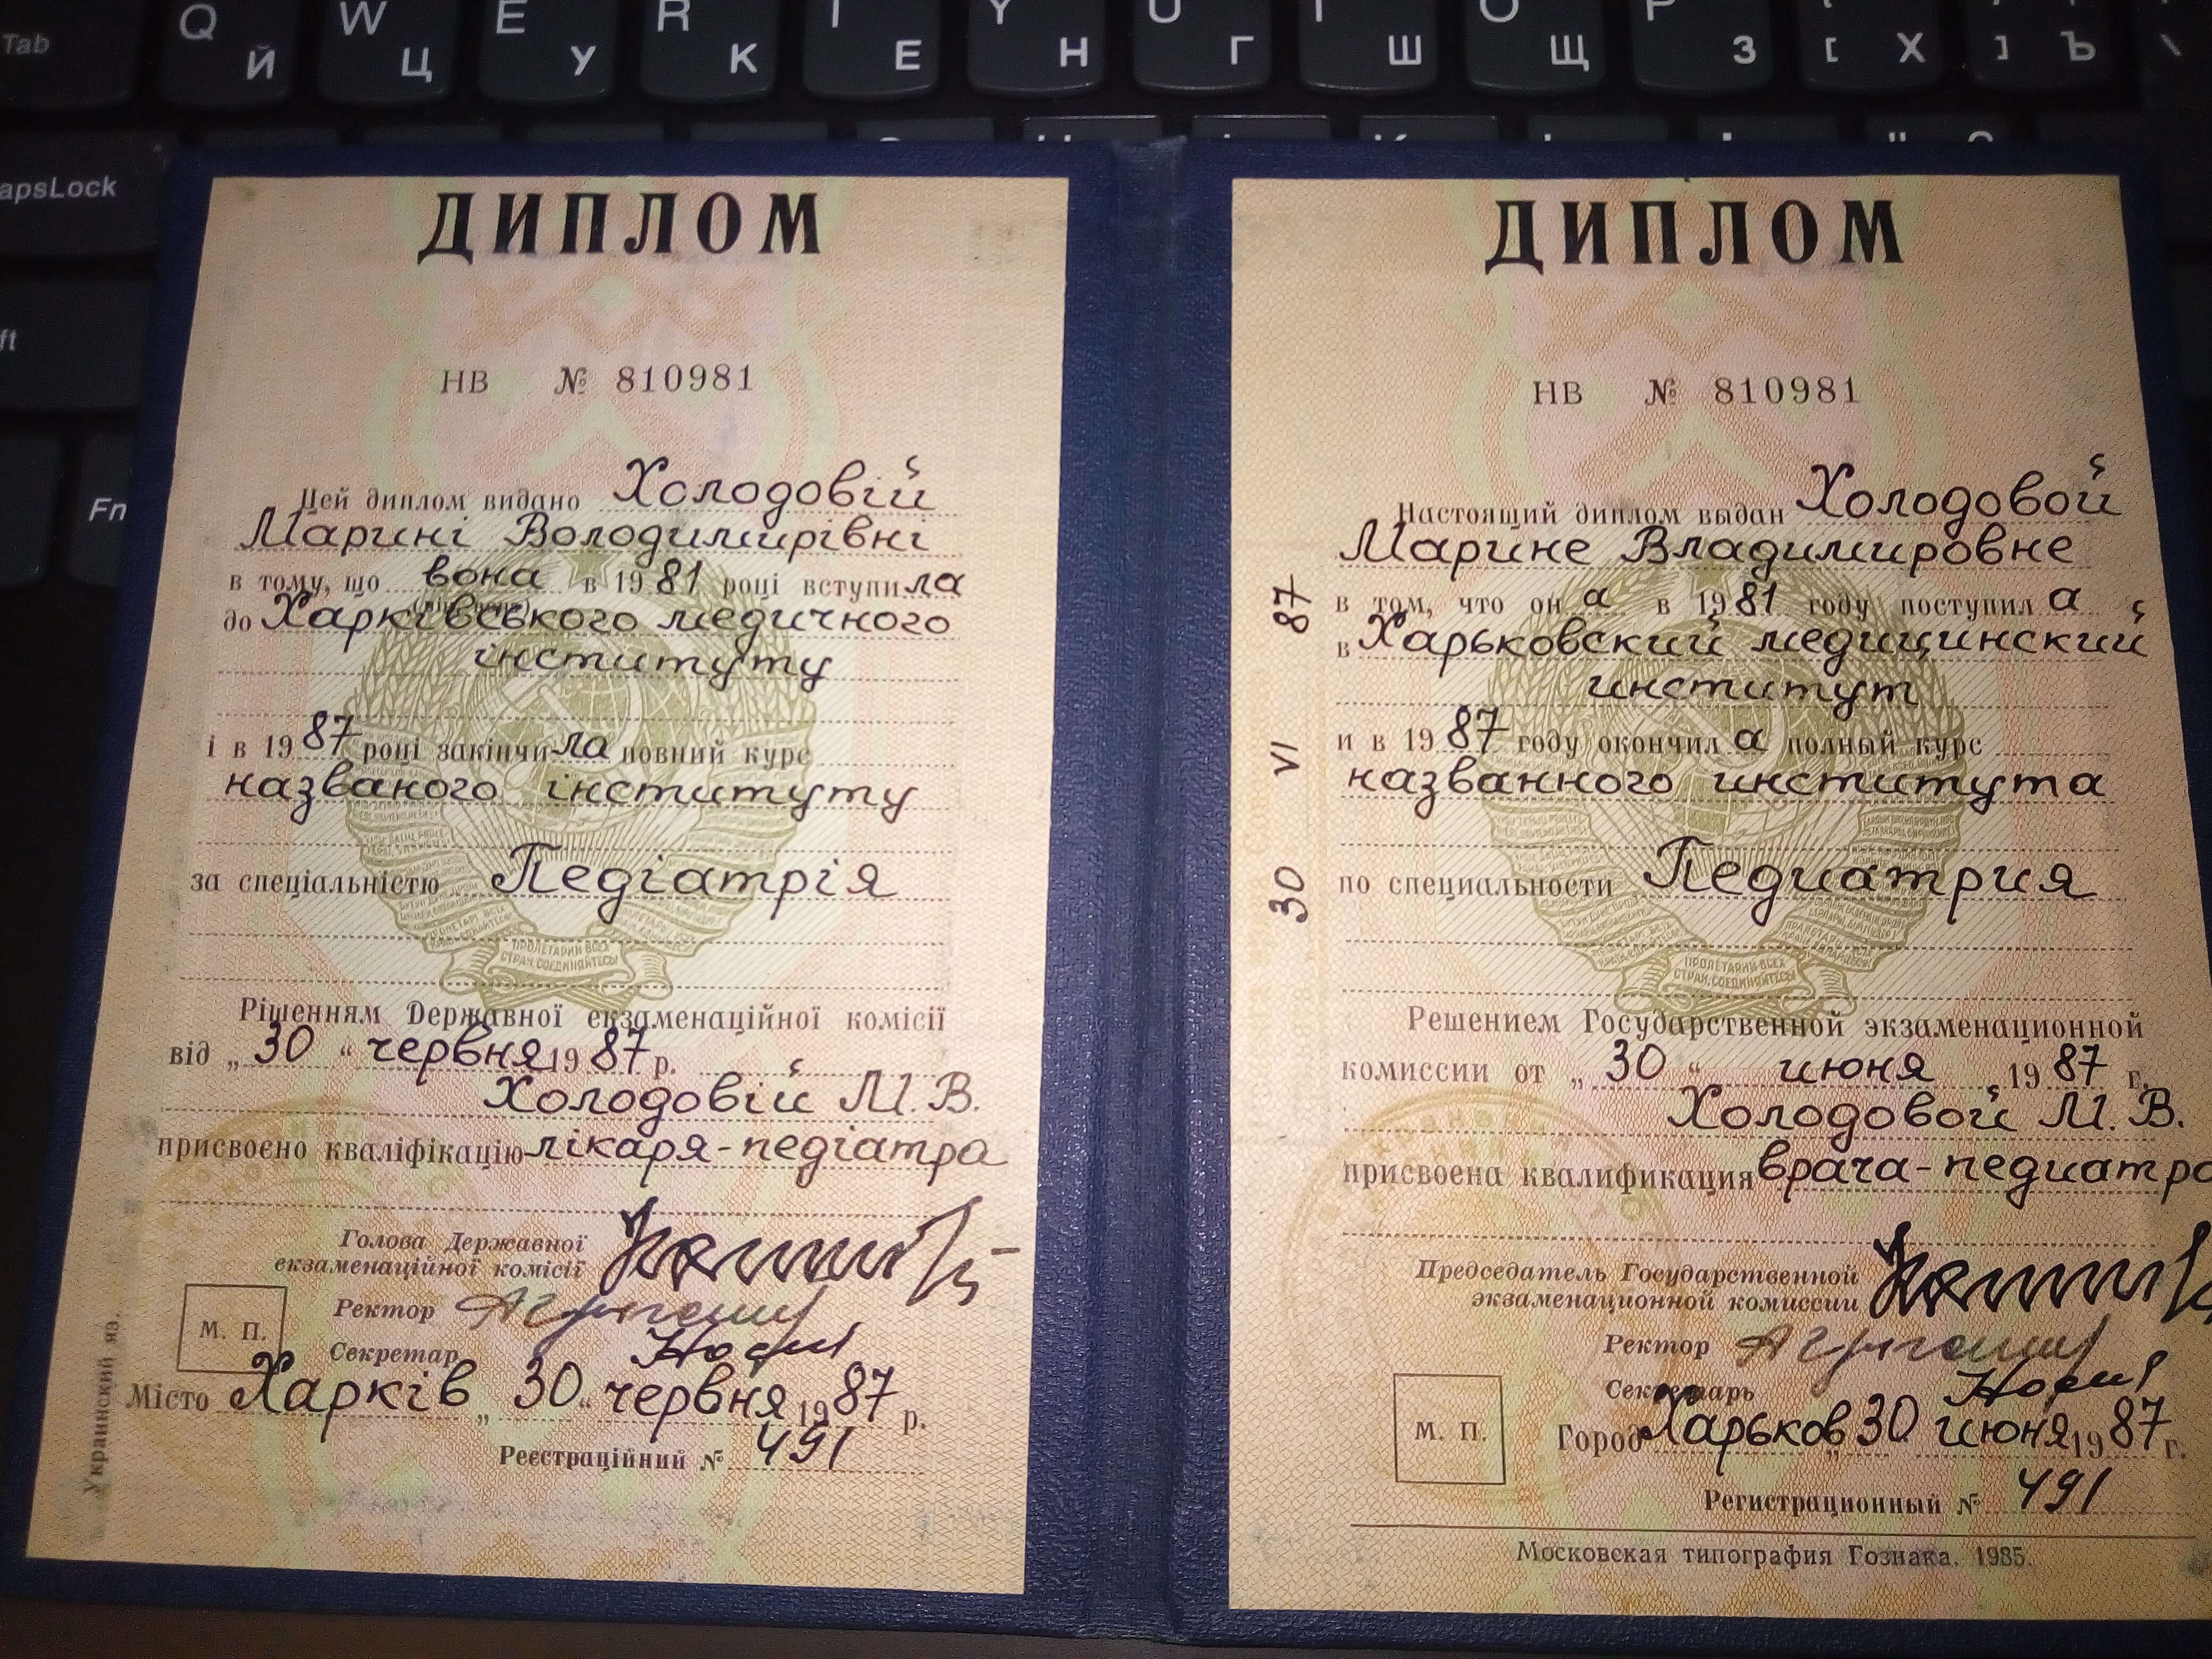 Tab
Q W E R T Y U I O P
Й Ц У К Е Н Г Ш Щ З [ Х ] Ъ \
apsLock
ft
Fn
ДИПЛОМ
НВ № 810981
Цей диплом видано Холодовій
Марині Володимирівні
в тому, що вона в 1981 році вступила
до Харківського медичного
інституту
і в 1987 році закінчила повний курс
названого інституту
за спеціальністю Педіатрія
ПРОЛЕТАРИИ ВСЕХ
СТРАН, СОЕДИНЯЙТЕСЬ!
Рішенням Державної екзаменаційної комісії
від „30“ червня 1987 р.
Холодовій М. В.
присвоєно кваліфікацію лікаря-педіатра
Голова Державної
екзаменаційної комісії
Ректор
Секретар
М. П.
Місто Харків „30“ червня 1987 р.
Реєстраційний № 491
Украинский яз.
ДИПЛОМ
НВ № 810981
Настоящий диплом выдан Холодовой
Марине Владимировне
в том, что она в 1981 году поступила
в Харьковский медицинский
институт
и в 1987 году окончила полный курс
названного института
по специальности Педиатрия
ПРОЛЕТАРИИ ВСЕХ
СТРАН, СОЕДИНЯЙТЕСЬ!
Решением Государственной экзаменационной
комиссии от „30“ июня 1987 г.
Холодовой М. В.
присвоена квалификация врача-педиатра
Председатель Государственной
экзаменационной комиссии
Ректор
Секретарь
М. П.
Город Харьков „30 июня 1987 г.
Регистрационный № 491
Московская типография Гознака. 1985.
30 VI 87